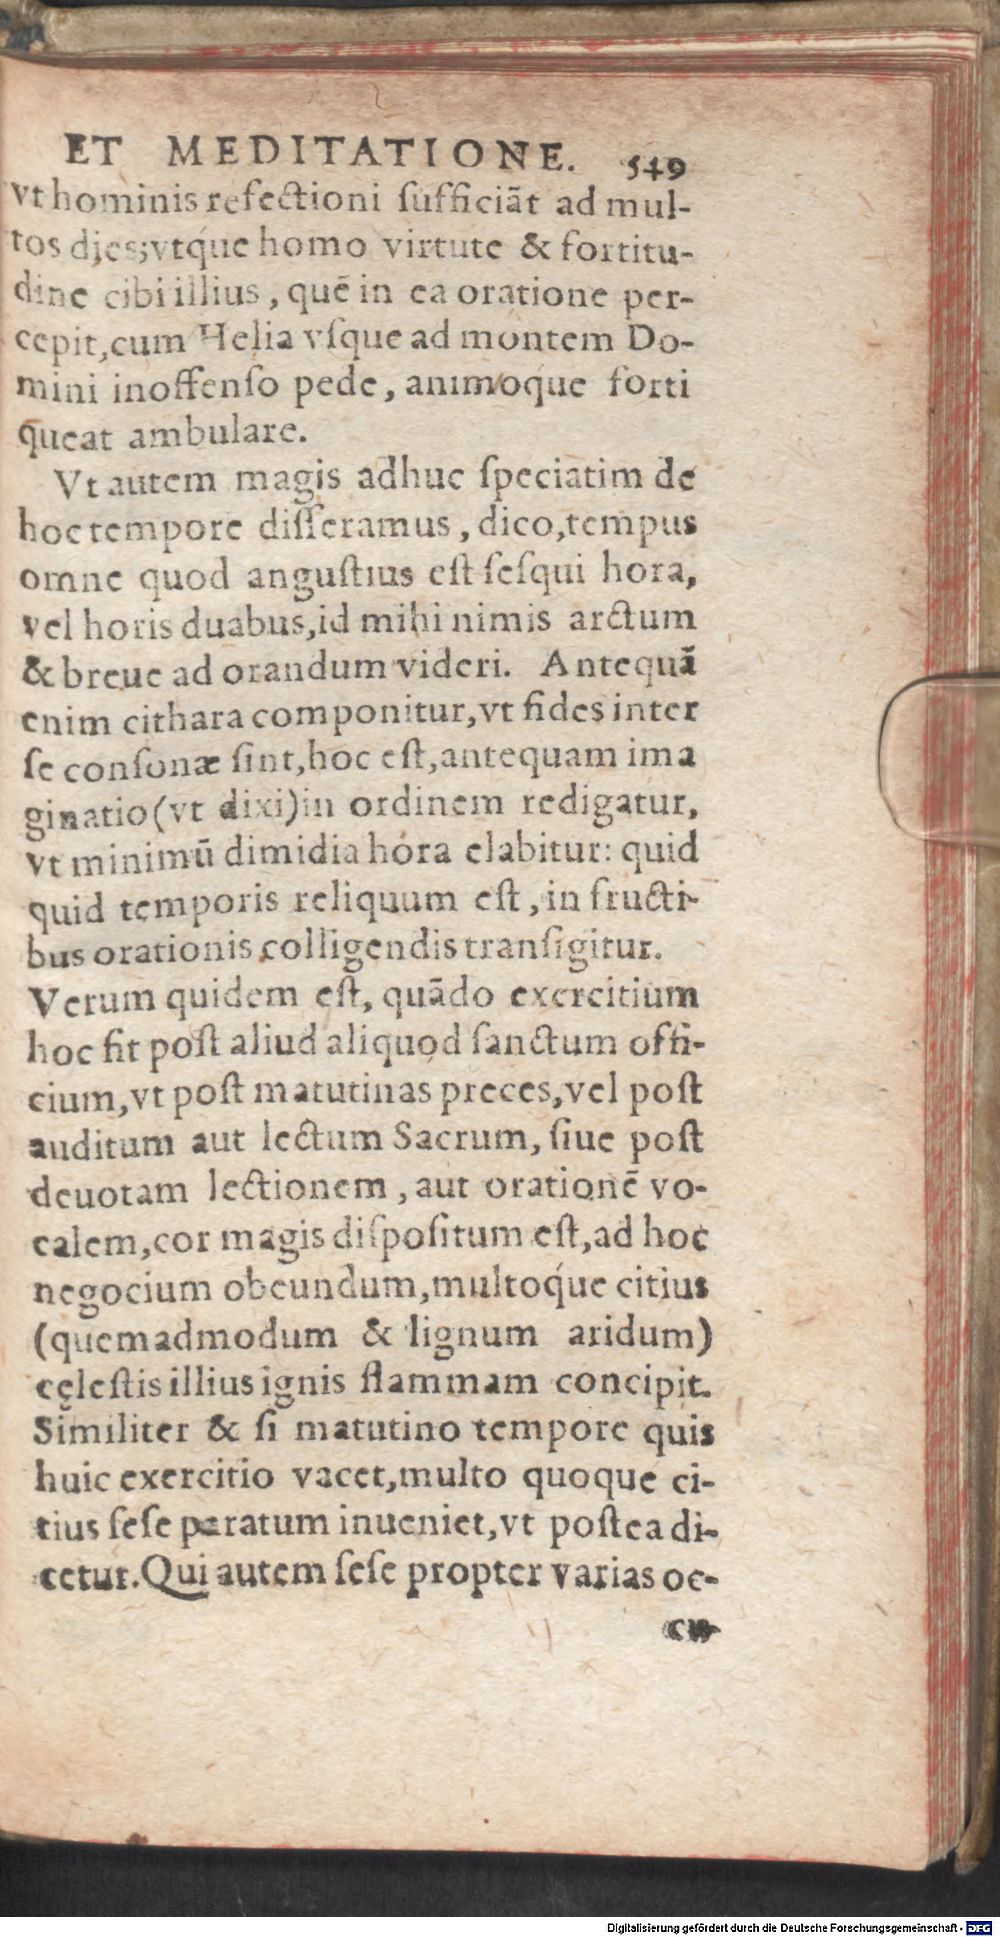 ET MEDITATIONE. 549
vt hominis refectioni ſufficiāt ad mul-
tos dies; vtq́ue homo virtute & fortitu-
dine cibi illius, quē in ea oratione per-
cepit, cum Helia vſque ad montem Do-
mini inoffenſo pede, animoque forti
queat ambulare.
Vt autem magis adhuc ſpeciatim de
hoc tempore diſſeramus, dico, tempus
omne quod anguſtius eſt ſeſqui hora,
vel horis duabus, id mihi nimis arctum
& breue ad orandum videri. Antequā
enim cithara componitur, vt fides inter
ſe conſonæ ſint, hoc eſt, antequam ima
ginatio (vt dixi) in ordinem redigatur,
vt minimū dimidia hora elabitur: quid
quid temporis reliquum eſt, in fructi-
bus orationis colligendis tranſigitur.
Verum quidem eſt, quādo exercitium
hoc fit poſt aliud aliquod ſanctum offi-
cium, vt poſt matutinas preces, vel poſt
auditum aut lectum Sacrum, ſiue poſt
deuotam lectionem, aut orationē vo-
calem, cor magis diſpoſitum eſt, ad hoc
negocium obeundum, multoq́ue citius
(quemadmodum & lignum aridum)
cęleſtis illius ignis flammam concipit.
Similiter & ſi matutino tempore quis
huic exercitio vacet, multo quoque ci-
tius ſeſe paratum inueniet, vt poſtea di-
cetur. Qui autem ſeſe propter varias oc-
cu-
Digitalisierung gefördert durch die Deutsche Forschungsgemeinschaft - DFG